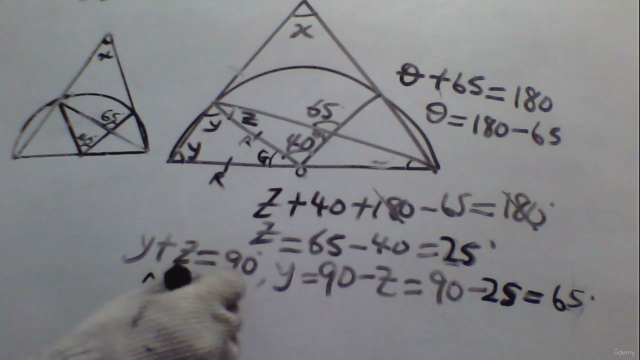 x
x
65
θ+65=180
θ=180-65
65
y
z
40
y
R
R
Z+40+180-65=180
Z=65-40=25
y+Z=90
y=90-Z=90-25=65
Udemy